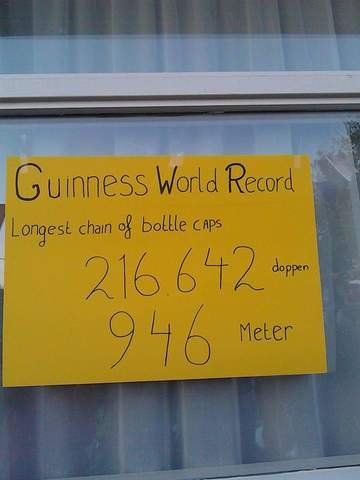 Guinness World Record
Longest chain of bottle caps
216.642 doppen
946 Meter